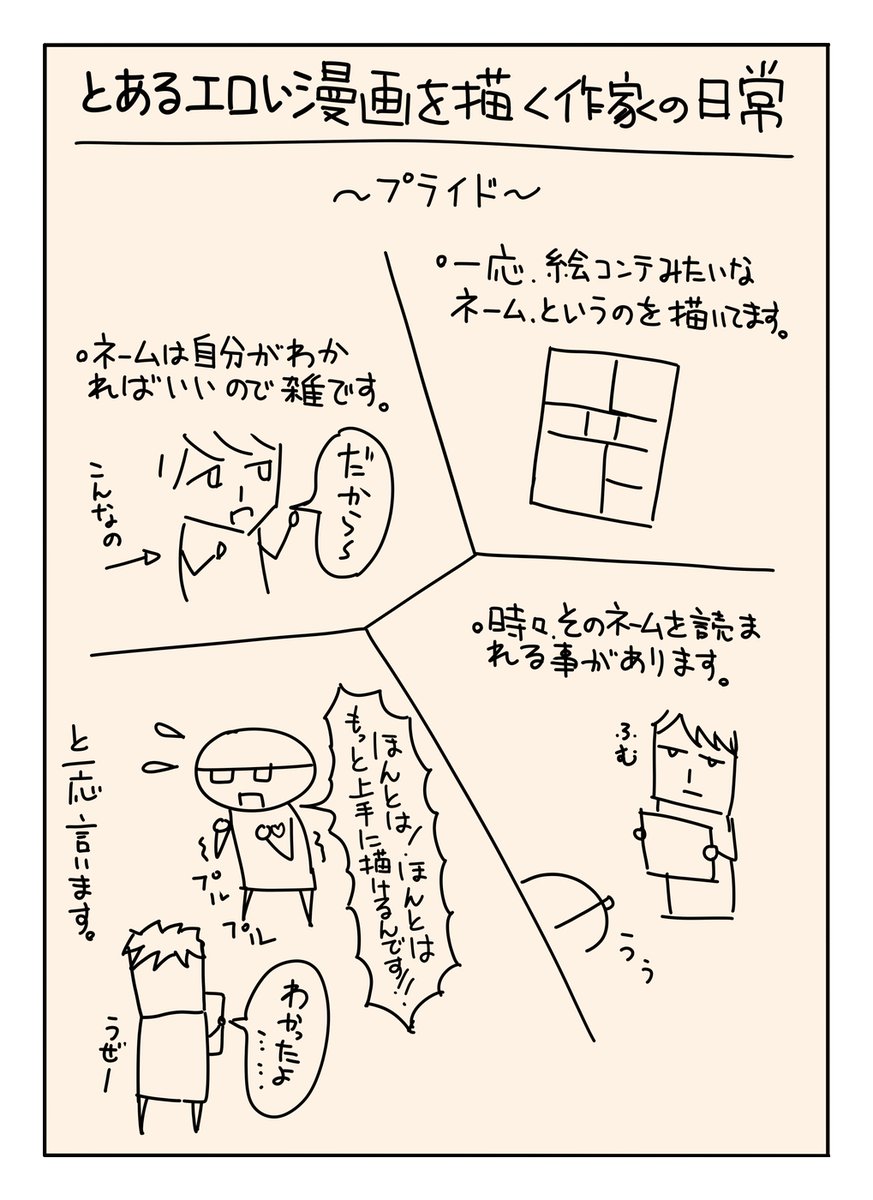 とあるエロい漫画を描く作家の日常
～プライド～
。一応、絵コンテみたいな
ネーム、というのを描いてます。
。ネームは自分がわか
ればいいので雑です。
だから～
こんなの
。時々、そのネームを読ま
れる事があります。
ふむ
うぅ
ほんとは！ほんとは
もっと上手に描けるんです!!
プル
プル
と一応言います。
わかったよ
……
うぜー